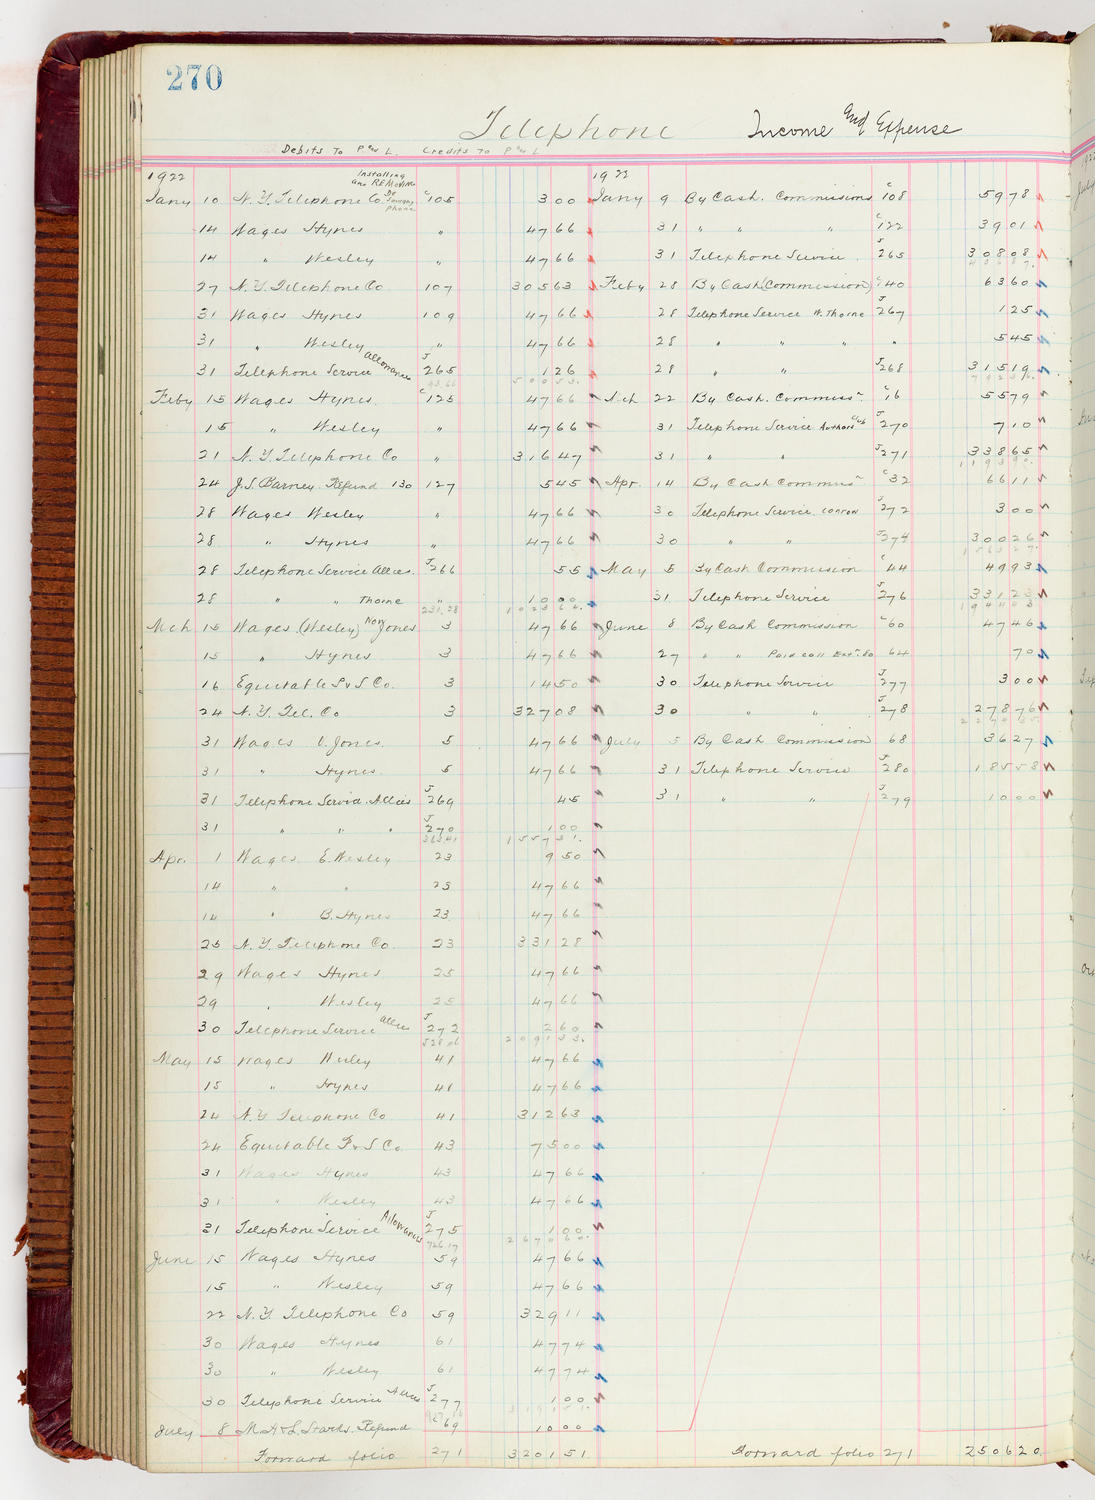 270
Telephone Income and Expense
Debits To P and L. Credits To P and L
1922
Installing and Removing
Jany 10 N.Y. Telephone Co. C 105 3 00
14 Wages Hynes " 47 66
14 " Wesley " 47 66
27 N.Y. Telephone Co 107 305 63
31 Wages Hynes 109 47 66
31 " Wesley " 47 66
31 Telephone Service Allowances J 265 1 26
500 53.
Feby 15 Wages Hynes. C 125 47 66
15 " Wesley " 47 66
21 N.Y. Telephone Co " 316 47
24 J.S. Barney Refund 130 127 5 45
28 Wages Wesley " 47 66
28 " Hynes " 47 66
28 Telephone Service Allces. J 266 55
28 " " Thorne " 10 00
231.28 1023 64.
Mch 15 Wages (Wesley) Now Jones 3 47 66
15 " Hynes 3 47 66
16 Equitable S & S Co. 3 14 50
24 N.Y. Tel. Co 3 327 08
31 Wages V. Jones. 5 47 66
31 " Hynes. 5 47 66
31 Telephone Service Allces J 269 45
31 " " " J 270 1 00
1557 31.
Apr. 1 Wages E. Wesley 23 9 50
14 " " 23 47 66
14 " B. Hynes 23 47 66
25 N.Y. Telephone Co. 23 331 28
29 Wages Hynes 25 47 66
29 " Wesley 25 47 66
30 Telephone Service Allces J 272 2 60
528 06 2091 33.
May 15 Wages Wesley 41 47 66
15 " Hynes 41 47 66
24 N.Y. Telephone Co 41 312 63
24 Equitable F & S Co. 43 75 00
31 Wages Hynes 43 47 66
31 " Wesley 43 47 66
31 Telephone Service Allowances J 275 1 00
726 17 2670 60.
June 15 Wages Hynes 59 47 66
15 " Wesley 59 47 66
22 N.Y. Telephone Co 59 329 11
30 Wages Hynes 61 47 74
30 " Wesley 61 47 74
30 Telephone Service Allces J 277 1 00
3191 51.
July 8 Refund 69 10 00
Forward folio 271 3201 51
Jany 9 By Cash. Commissions C 108 59 78
31 " " " C 122 39 01
31 Telephone Service. J 265 308 08
Feby 28 By Cash (Commission) C 140 63 60
28 Telephone Service W. Thorne J 267 1 25
28 " " " " 5 45
28 " " J 268 315 19
Mch 22 By Cash. Commissn C 16 55 79
31 Telephone Service Authors Club J 270 7 10
31 " " J 271 338 65
1193 90.
Apr. 14 By Cash Commissn C 32 66 11
30 Telephone Service. Conron J 272 3 00
30 " " J 274 300 26
1563 27.
May 5 By Cash Commission C 44 49 93
31. Telephone Service J 276 331 23
1944 43
June 8 By Cash Commission C 60 47 46
27 " " Paid call Extn. 80 64 70
30 Telephone Service J 277 3 00
30 " " J 278 278 76
July 5 By Cash Commission 68 36 27
31 Telephone Service J 280 185 58
31 " " J 279 10 00
Forward folio 271 2506 20